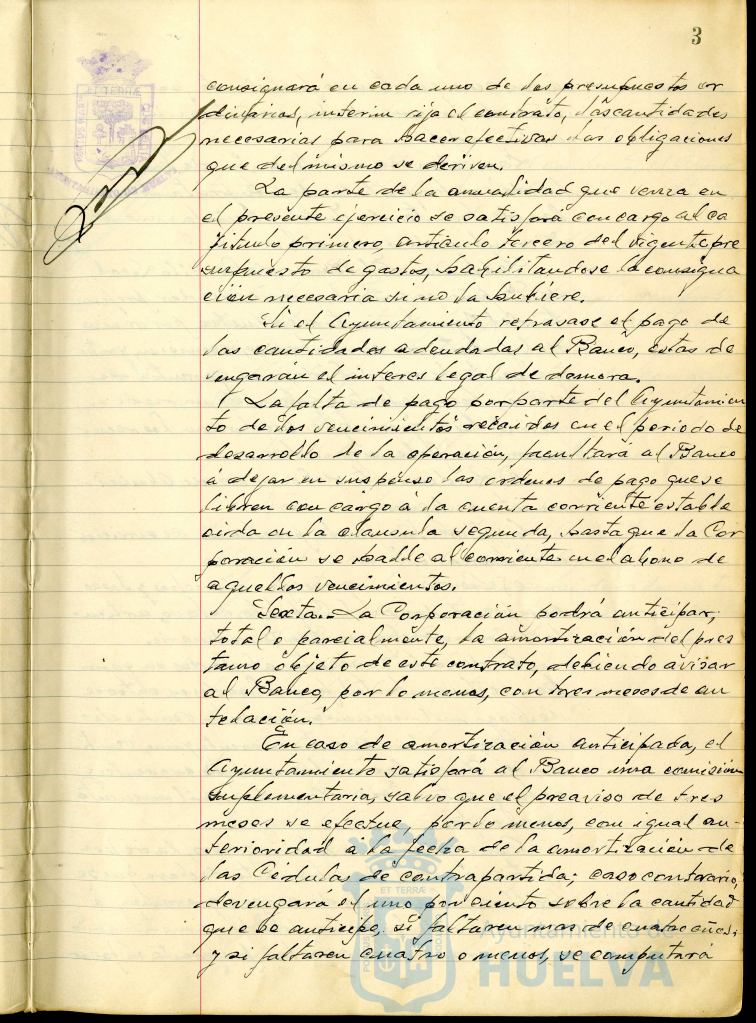 3
consignará en cada uno de los presupuestos or
dinarios, interin rija el contrato, las cantidades
necesarias para hacer efectivas las obligaciones
que del mismo se deriven.
La parte de la anualidad que venza en
el presente ejercicio se satisfará con cargo al ca
pitulo primero, articulo tercero del vigente pre
supuesto de gastos, habilitandose la consigna
ción necesaria si no la hubiere.
Si el Ayuntamiento retrasase el pago de
las cantidades adeudadas al Banco, éstas de
vengarán el interes legal de demora.
La falta de pago por parte del Ayuntamien
to de los vencimientos recaidos en el periodo de
desarrollo de la operación, facultará al Banco
á dejar en suspenso las ordenes de pago que se
libren con cargo á la cuenta corriente estable
cida en la clausula segunda, hasta que la Cor
poración se halle al corriente en el abono de
aquellos vencimientos.
Sexta.- La Corporación podrá anticipar,
total o parcialmente, la amortización del pres
tamo objeto de este contrato, debiendo avisar
al Banco, por lo menos, con tres meses de an
telación.
En caso de amortización anticipada, el
Ayuntamiento satisfará al Banco una comisión
suplementaria, salvo que el preaviso de tres
meses se efectue, por lo menos, con igual an-
terioridad á la fecha de la amortización de
las Cédulas de contrapartida; caso contrario,
devengará el uno por ciento sobre la cantidad
que se anticipe, si faltaren mas de cuatro años,
y si faltaren cuatro o menos, se computará
ET TERRÆ
Ayuntamiento de
HUELVA